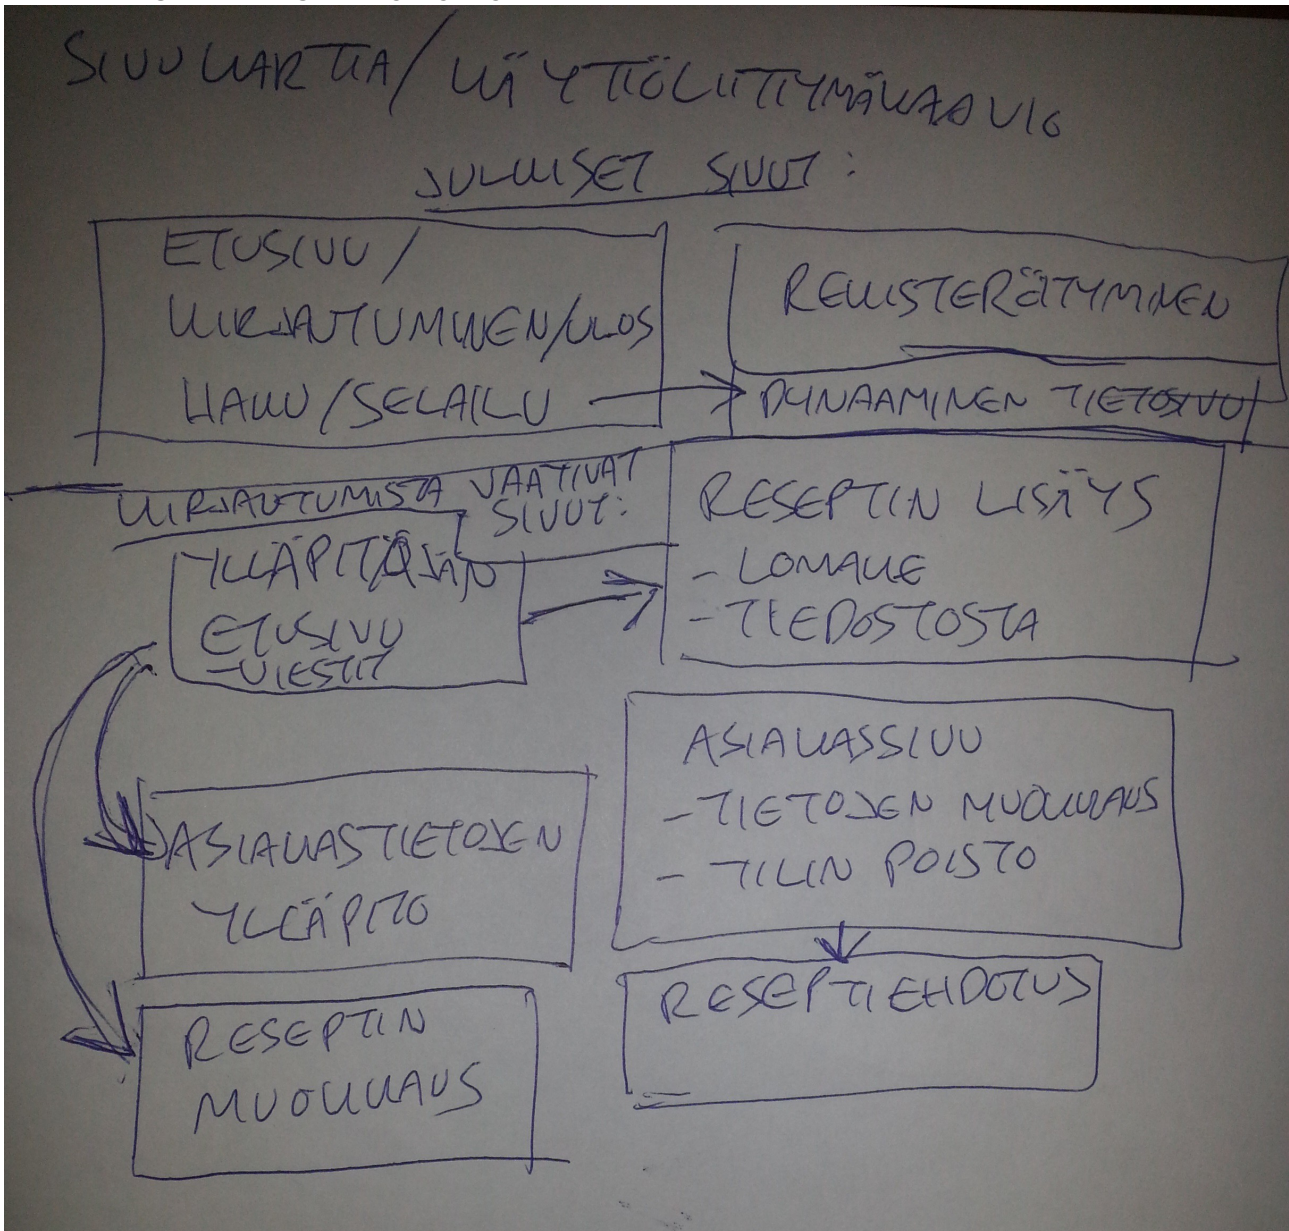 SIVUKARTTA/KÄYTTÖLIITTYMÄKAAVIO
JULKISET SIVUT:
ETUSIVU/
KIRJAUTUMINEN/ULOS
HAKU/SELAILU
REKISTERÖITYMINEN
DYNAAMINEN TIETOSIVU
KIRJAUTUMISTA VAATIVAT
SIVUT:
YLLÄPITÄJÄN
ETUSIVU
-VIESTIT
RESEPTIN LISÄYS
- LOMAKE
- TIEDOSTOSTA
ASIAKASTIETOJEN
YLLÄPITO
ASIAKASSIVU
- TIETOJEN MUOKKAUS
- TILIN POISTO
RESEPTIN
MUOKKAUS
RESEPTIEHDOTUS